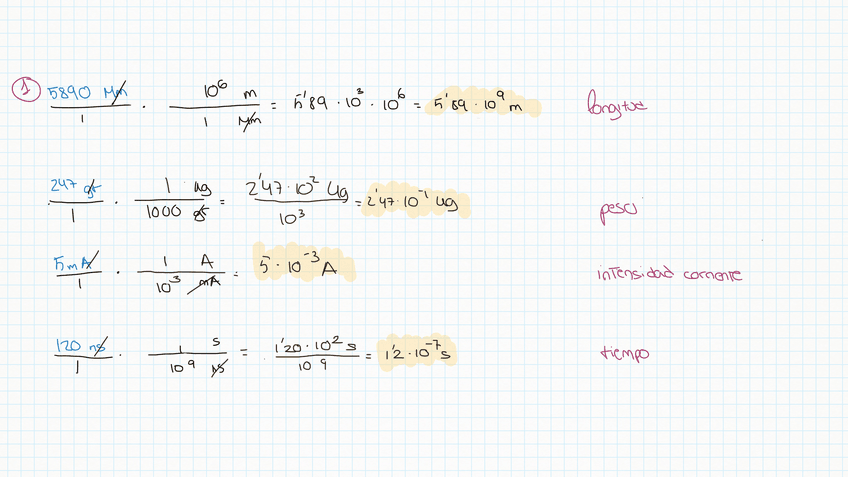 ① 5890 Mm / 1 · 10⁶ m / 1 Mm = 5'89 · 10³ · 10⁶ = 5'89 · 10⁹ m longitud
247 gr / 1 · 1 ug / 1000 gr = 2'47 · 10² ug / 10³ = 2'47 · 10⁻¹ ug peso
5 mA / 1 · 1 A / 10³ mA = 5 · 10⁻³ A intensidad corriente
120 ns / 1 · 1 s / 10⁹ ns = 1'20 · 10² s / 10⁹ = 1'2 · 10⁻⁷ s tiempo